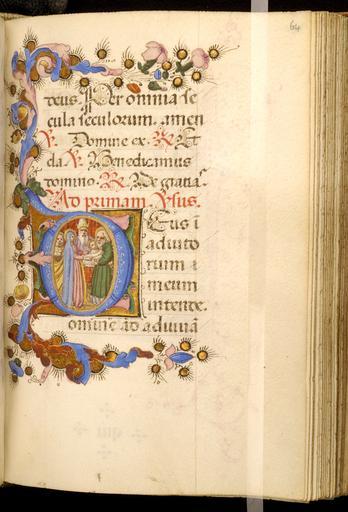 64
teus. Per omnia se
cula seculorum. amen
℣. Domine ex. ℟. Et
cla ℣. Benedicamus
domino. ℟. Deo gratias.
Ad primam. ℣sus.
Deus i
adiuto
rium
meum
intende.
omine ad adiuua